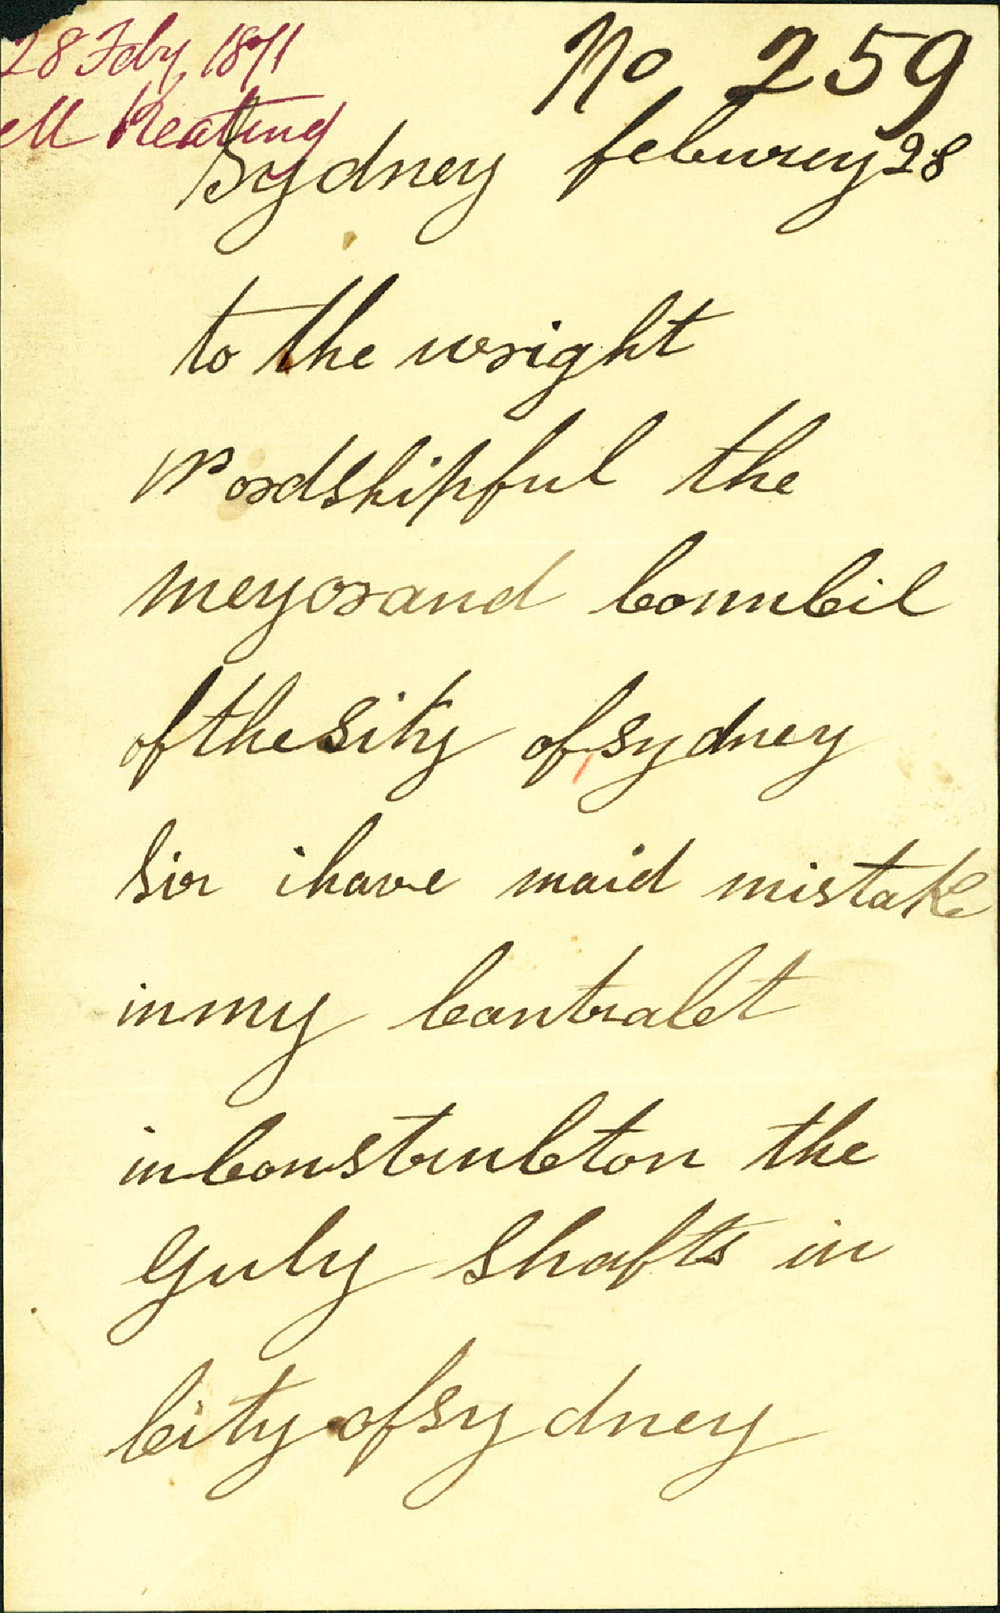 28 Feby 1871
M Keating
No 259
Sydney feburey 28
to the wright
wordshipful the
meyor and CouncCil
of the Sity of Sydney
Sir i have maid mistake
in my Contract
in Constructon the
Guly Shafts in
City of Sydney